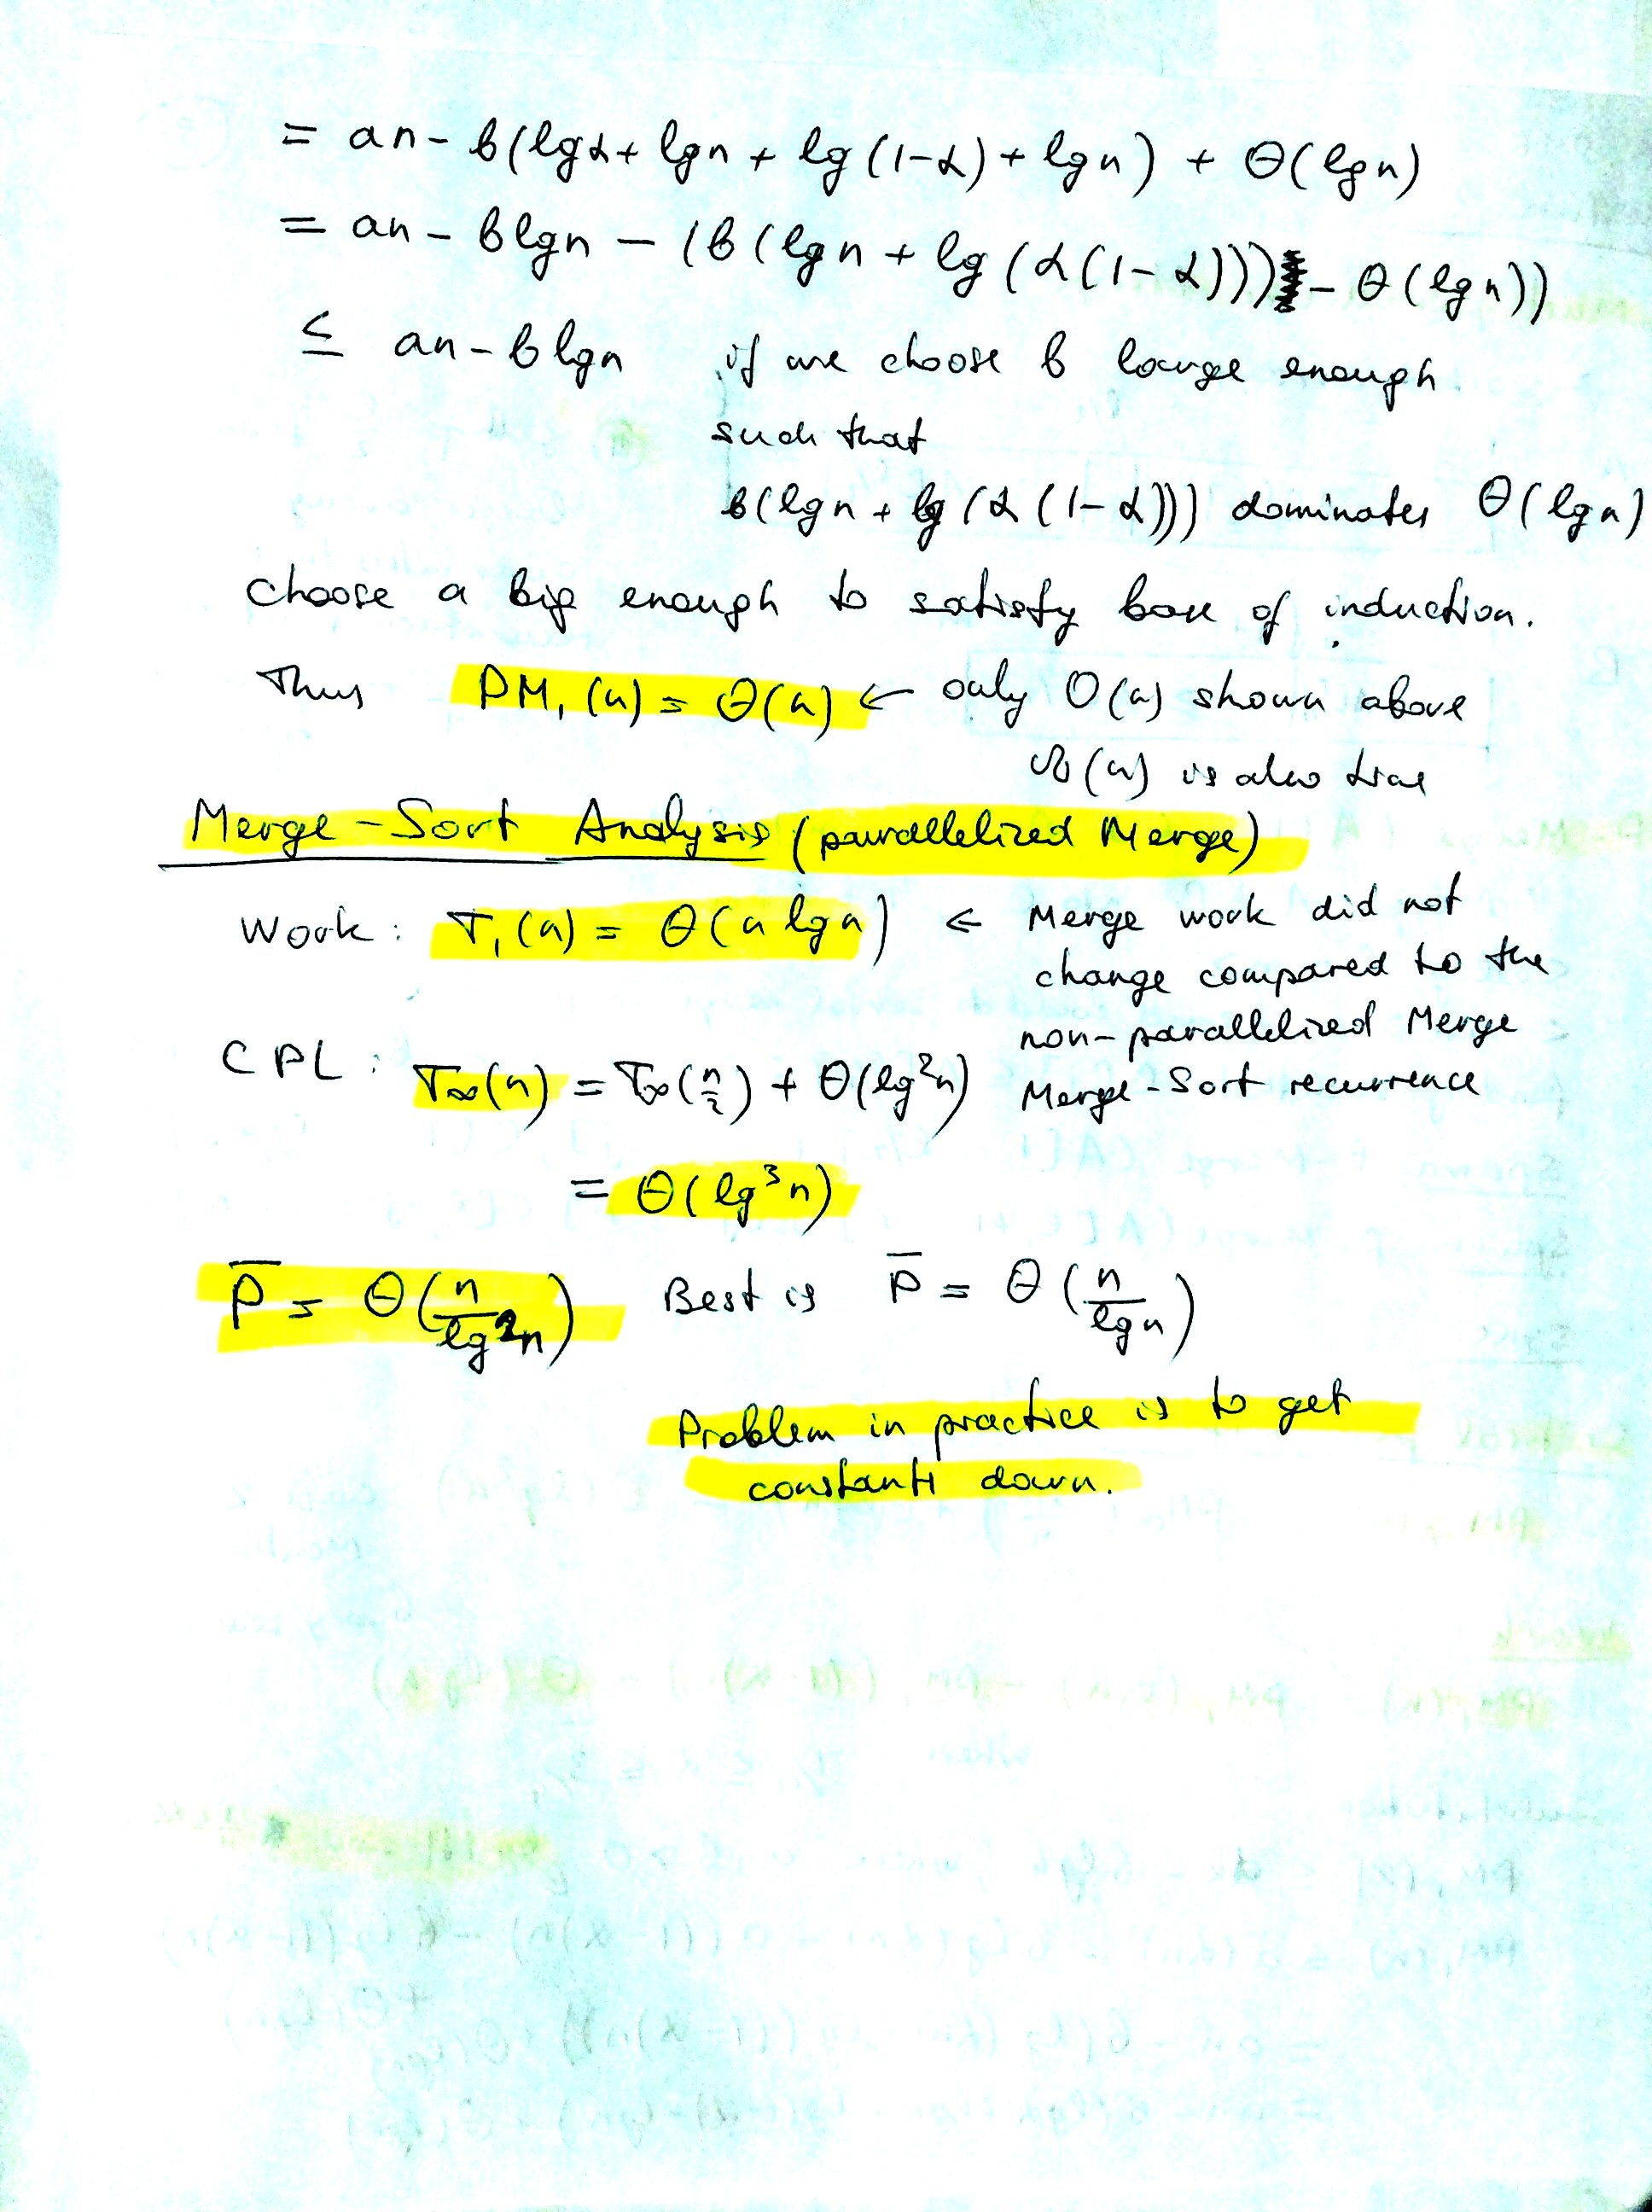 = an - b(lgα + lgn + lg(1-α) + lgn) + Θ(lgn)
= an - blgn - (b(lgn + lg(α(1-α))) - Θ(lgn))
≤ an - blgn if we choose b large enough
such that
b(lgn + lg(α(1-α))) dominates Θ(lgn)
choose a big enough to satisfy base of induction.
Thus PM₁(n) = Θ(n) ← only O(n) shown above
Ω(n) is also true
Merge-Sort Analysis (parallelized Merge)
Work: T₁(n) = Θ(n lgn) ← Merge work did not
change compared to the
non-parallelized Merge
CPL: T∞(n) = T∞(n/2) + Θ(lg²n) Merge-Sort recurrence
= Θ(lg³n)
P̅ = Θ(n/lg²n) Best is P̅ = Θ(n/lgn)
Problem in practice is to get
constants down.